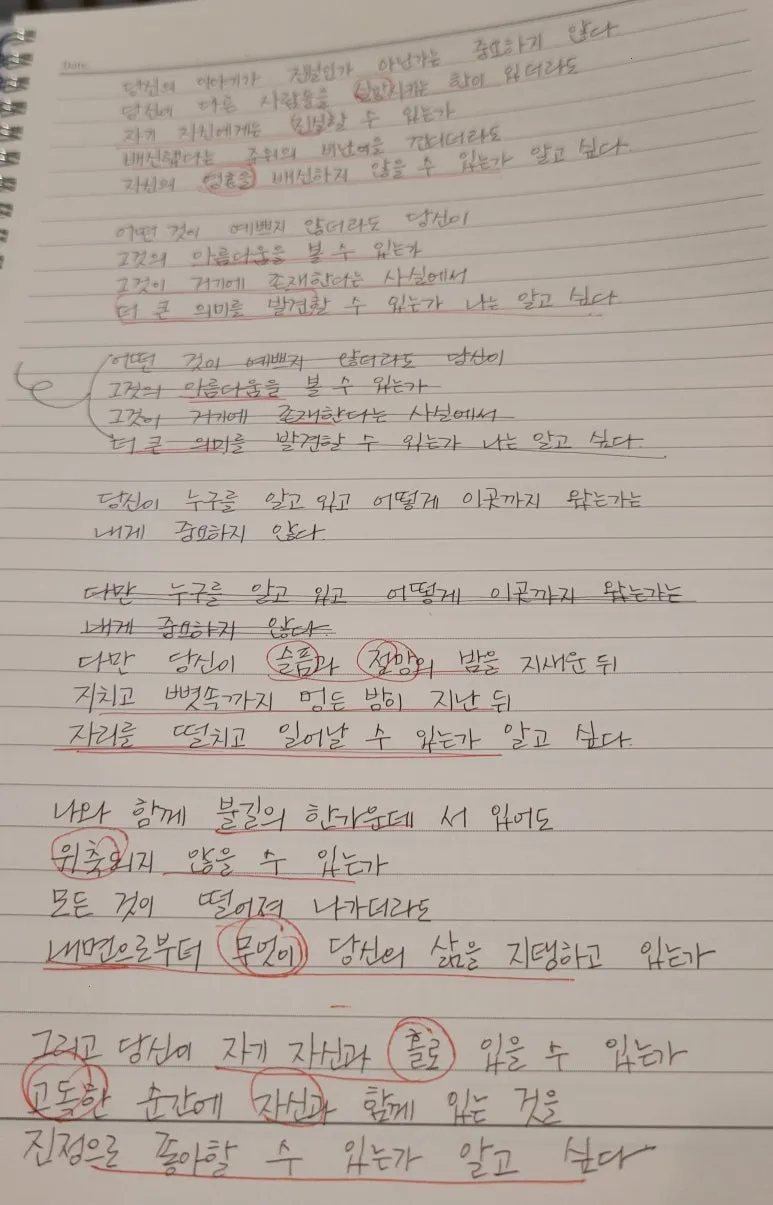 Date.
당신의 이야기가 진실인가 아닌가는 중요하지 않다
당신이 다른 사람들을 실망시키는 한이 있더라도
자기 자신에게는 진실할 수 있는가
배신했다는 주위의 비난을 견디더라도
자신의 영혼을 배신하지 않을 수 있는가 알고 싶다.
어떤 것이 예쁘지 않더라도 당신이
그것의 아름다움을 볼 수 있는가
그것이 거기에 존재한다는 사실에서
더 큰 의미를 발견할 수 있는가 나는 알고 싶다
어떤 것이 예쁘지 않더라도 당신이
그것의 아름다움을 볼 수 있는가
그것이 거기에 존재한다는 사실에서
더 큰 의미를 발견할 수 있는가 나는 알고 싶다.
당신이 누구를 알고 있고 어떻게 이곳까지 왔는가는
내게 중요하지 않다.
다만 누구를 알고 있고 어떻게 이곳까지 왔는가는
내게 중요하지 않다.
다만 당신이 슬픔과 절망의 밤을 지새운 뒤
지치고 뼛속까지 멍든 밤이 지난 뒤
자리를 떨치고 일어날 수 있는가 알고 싶다.
나와 함께 불길의 한가운데 서 있어도
위축되지 않을 수 있는가
모든 것이 떨어져 나가더라도
내면으로부터 무엇이 당신의 삶을 지탱하고 있는가
그리고 당신이 자기 자신과 홀로 있을 수 있는가
고독한 순간에 자신과 함께 있는 것을
진정으로 좋아할 수 있는가 알고 싶다